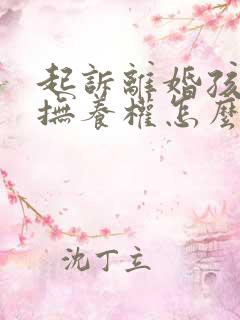 起訴離婚孩
撫養權怎麼
沈丁立